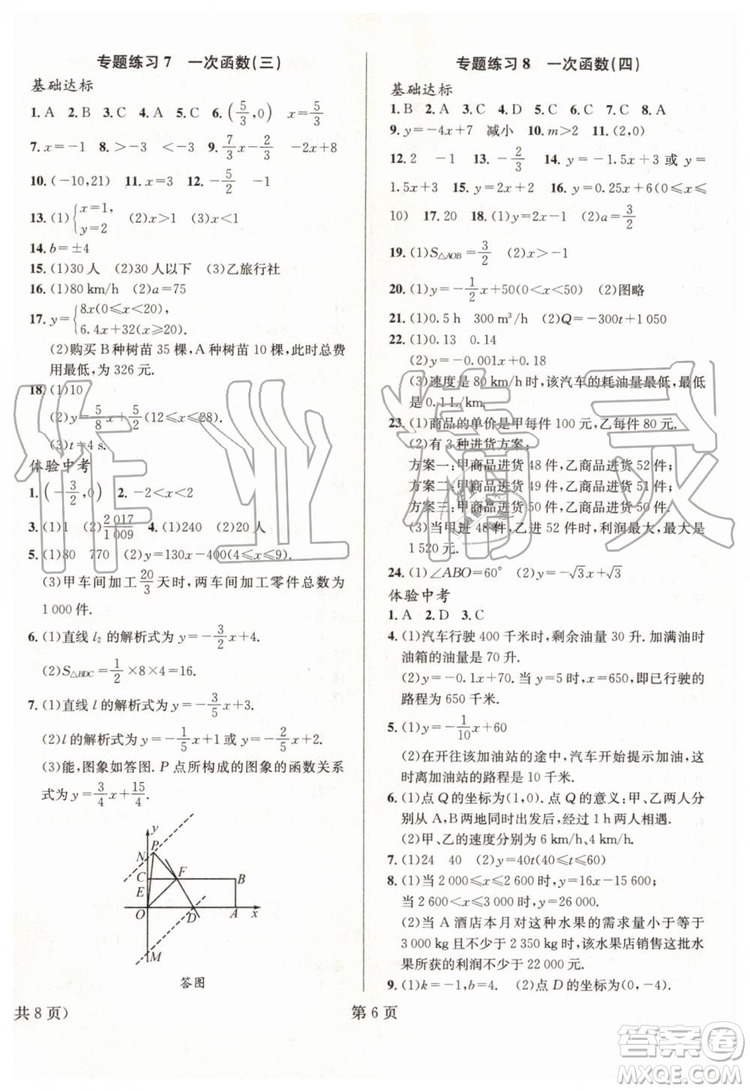 专题练习7 一次函数(三)
基础达标
1. A 2. B 3. C 4. A 5. C 6. (5/3,0)
7. x=-1 8. >-3 <-3 9. 7/3 -3/2 10. -2x+8
10. (-10,21) 11. x>3 12. -5/2 -1
13. (1){x=1, y=2 (2)x<1
14. b=±4
15. (1)30 人 (2)30 人以下 (3)乙旅行社
16. (1)80 km/h (2)a=75
17. y={8x(0≤x≤20) 6.4x+32(x≥20)
(2)购买 B 种树苗 35 棵,A 种树苗 10 棵,此时总费
用最低,为 326 元.
18. (1)10
(2)y=5/8x+5/2(12≤x≤28).
(3)t=4 s.
体验中考
1. (-3/2,0) 2. -2<x<2
3. (1)1 (2)2 017/1 009 4. (1)240 (2)20
5. (1)80 770 (2)y=130x-400(4≤x≤9).
(3)甲车间加工20/3天时,两车间加工零件总数为
1 000 件.
6. (1)直线 l₂ 的解析式为 y=-3/2x+6.
(2)S△BDC=1/2×8×4=16.
7. (1)直线 l 的解析式为 y=-3/5x+3
(2)l 的解析式为 y=-1/5x+2 或 y=-9/5x+6
(3)能,图象如答图. P 点所构成的图象的函数关系
式为 y=3/4x+15/4
y
P
N
C F B
E
O D A x
M
答图
共 8 页)
专题练习8 一次函数(四)
基础达标
1. B 2. A 3. C 4. D 5. C 6. A 7. C 8. A
9. y=-4x+7 减小 10. m>2 11. (2,0)
12. 2 -1 13. -2/3 14. y=-1.5x+3 或 y=
1.5x+3 15. y=2x+1 16. y=0.25x+6(0≤x≤
10) 17. 20 18. (1)y=2x+1 (2)a=3/2
19. (1)S△AOB=3/2 (2)x>-1
20. (1)y=-1/2x+50 (2)图略
21. (1)0.5 h 300 m³/h (2)Q=-300t+1 050
22. (1)0.13 0.14
(2)y=-0.001x+0.18
(3)速度是 80 km/h 时,该汽车的耗油量最低,最低
是 0.1 L/km.
23. (1)商品的单价是甲每件 100 元,乙每件 80 元.
(2)有 3 种进货方案:
方案一:甲商品进货 48 件,乙商品进货 52 件;
方案二:甲商品进货 49 件,乙商品进货 51 件;
方案三:甲商品进货 50 件,乙商品进货 50 件.
(3)当甲进 48 件,乙进 52 件时,利润最大,最大为
1 520 元.
24. (1)∠ABO=60° (2)y=-√3x+√3
体验中考
1. A 2. D 3. C
4. (1)汽车行驶 400 千米时,剩余油量 30 升. 加满油时
油箱的油量是 70 升.
(2)y=-0.1x+70. 当 y=5 时,x=650. 即已行驶的
路程为 650 千米.
5. (1)y=-1/10x+60
(2)在开往该加油站的途中,汽车开始提示加油,这
时离加油站的路程是 10 千米.
6. (1)点 Q 的坐标为(1,0). 点 Q 的意义:甲、乙两人
分别从 A、B 两地同时出发后,经过 1 小时两人相遇.
(2)甲、乙的速度分别为 6 km/h、4 km/h.
7. (1)24 40 (2)y=40t(40≤t≤60)
8. (1)当 2 000≤x≤2 600 时,y=10x-15 600;
当 2 600<x≤3 000 时,y=2x+5 200.
(2)当 A 酒店本月对这种水果的需求量小于等于
3 000 kg 且不少于 2 350 kg 时,该水果店销售这批水
果所获的利润不少于 22 000 元.
9. (1)k=-1/2 (2)点 D 的坐标为(0,-4).
第 6 页
作业精灵
答案圈
MXQE.COM